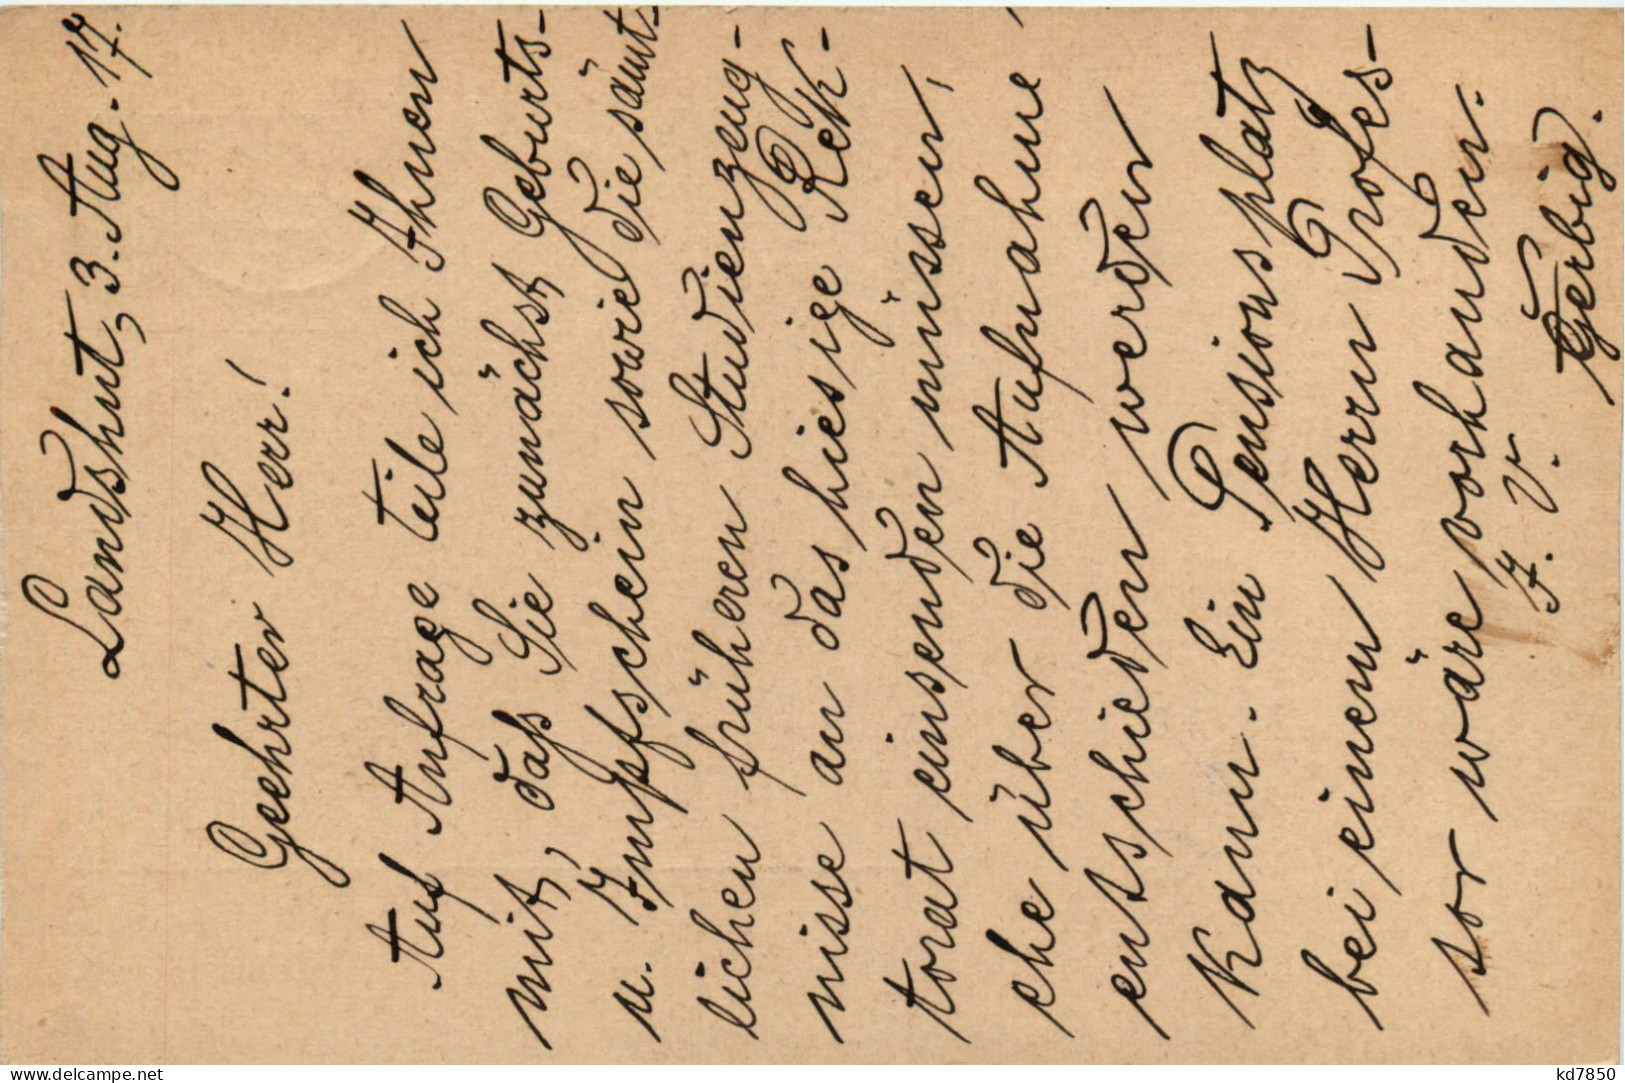 Landshut, 3. Aug. 17.
Geehrter Herr!
Auf Anfrage teile ich Ihnen
mit, daß Sie zunächst Geburts-
u. Impfschein sowie die sämt-
lichen früheren Studienzeug-
nisse an das hiesige Rek-
torat einsenden müssen,
ehe über die Aufnahme
entschieden werden
kann. Ein Pensionsplatz
bei einem Herrn Profes-
sor wäre vorhanden.
I. V.
Gerbig.
delcampe.net
kd7850